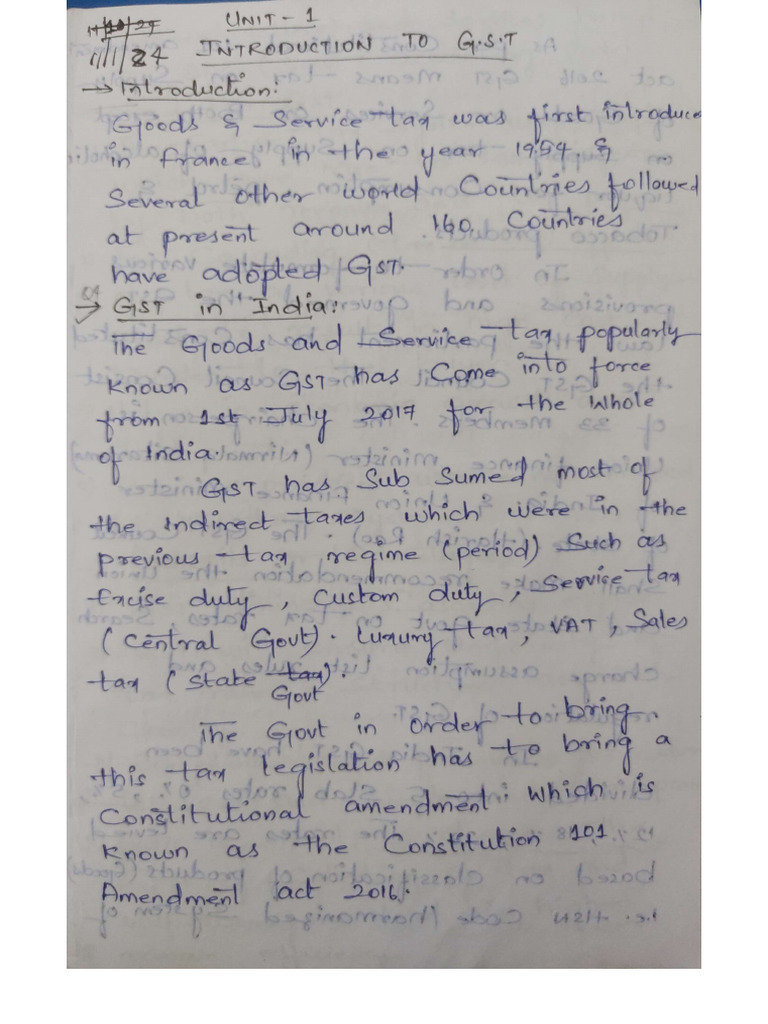 UNIT - 1
11/1/24 INTRODUCTION TO G.S.T
→ Introduction:
Goods & Service tax was first introduce
in france in the year 1954 &
Several other world Countries followed
at present around 160 Countries
have adopted GST.
→ GST in India:
The Goods and Service tax popularly
known as GST has Come into force
from 1st July 2017 for the whole
of India.
GST has Sub Sumed most of
the Indirect taxes which were in the
previous tax regime (period) Such as
Excise duty, Custom duty, Service tax
(Central Govt). Luxury tax, VAT, Sales
tax (State tax).
Govt
The Govt in order to bring
this tax legislation has to bring a
Constitutional amendment which is
known as the Constitution 101
Amendment act 2016.